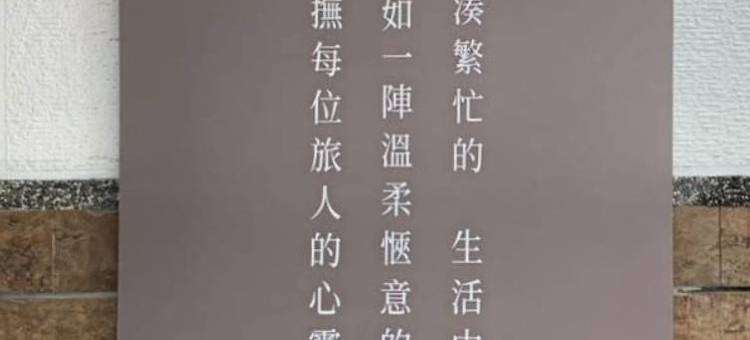 湊繁忙的 生活中
如一陣溫柔愜意的
撫每位旅人的心靈